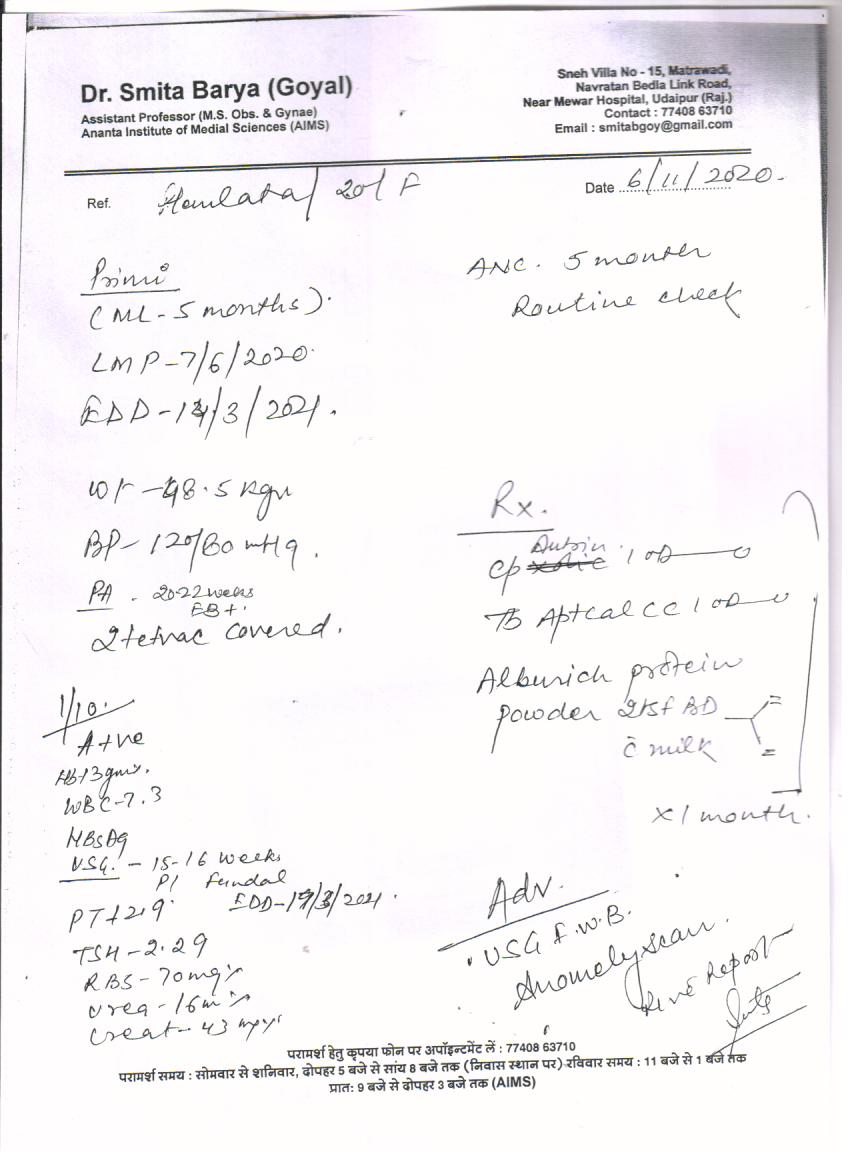 Dr. Smita Barya (Goyal)
Assistant Professor (M.S. Obs. & Gynae)
Ananta Institute of Medial Sciences (AIMS)
Sneh Villa No - 15, Matrawadi,
Navratan Bedla Link Road,
Near Mewar Hospital, Udaipur (Raj.)
Contact : 77408 63710
Email : smitabgoy@gmail.com
Ref. 20/F
Date 6/11/2020.
Primi
(ML - 5 months).
LMP - 7/6/2020.
EDD - 14/3/2021.
Wt - 48.5 kgm
BP - 120/80 mHg.
PA - 20-22 weeks
EB+.
2 tetvac covered.
1/10.
A+ve
Hb 13 gm%.
WBC - 7.3
HBsAg
USG. - 15-16 weeks
Pl fundal
EDD - 19/3/2021.
TSH - 2.29
RBS - 70 mg%
Urea - 16 m%
Creat - 43
ANC. 5 months
Routine check
Rx.
Cp 1 OD
Tb Aptcal CC 1 OD
Alburich protein
powder 2tsf BD
c̄ milk
x 1 month.
Adv.
. USG F.W.B.
Anomely scan.
Report
परामर्श हेतु कृपया फोन पर अपॉइन्टमेंट लें : 77408 63710
परामर्श समय : सोमवार से शनिवार, दोपहर 5 बजे से सांय 8 बजे तक (निवास स्थान पर) रविवार समय : 11 बजे से 1 बजे तक
प्रातः 9 बजे से दोपहर 3 बजे तक (AIMS)